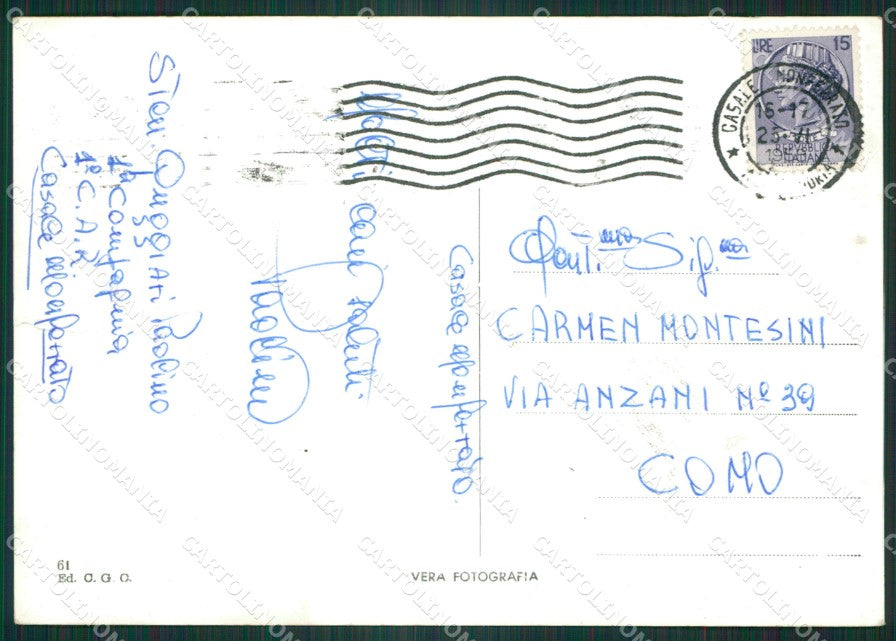 LIRE 15
REPUBBLICA
ITALIANA
CASALE MONFERRATO
16-17
23 VI
Gent.ma Sig.na
CARMEN MONTESINI
VIA ANZANI Nº 39
COMO
Casale Monferrato
cari saluti
Paolino
Paolino
1ª Compagnia
1º C.A.R.
Casale Monferrato
61
Ed. C. G. C.
VERA FOTOGRAFIA
CARTOLINOMANIA